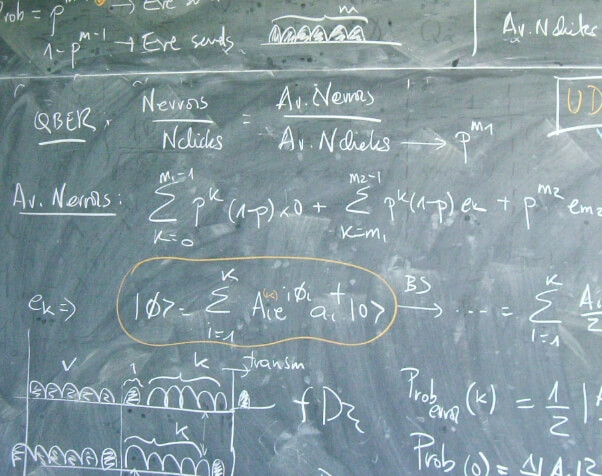 Prob = p^{m-1} → Eve s
1-p^{m-1} → Eve sends m Av. Nclicks
QBER = Nerrors / Nclicks = Av. Nerrors / Av. Nclicks → p^{m1} UD
Av. Nerrors: \sum_{k=0}^{m1-1} p^k (1-p) x0 + \sum_{k=m1}^{m2-1} p^k (1-p) e_k + p^{m2} e_{m2}
e_k ⇒ |φ> = \sum_{i=1}^{k} A_i^{(k)} e^{iφ_i} a_i^† |0> BS → ... = \sum_{i=1}^{k} A_i / 2
V 1 k transm
Prob error (k) = 1/2 |A
k
Prob (0) = 1/4 |A_1|^2